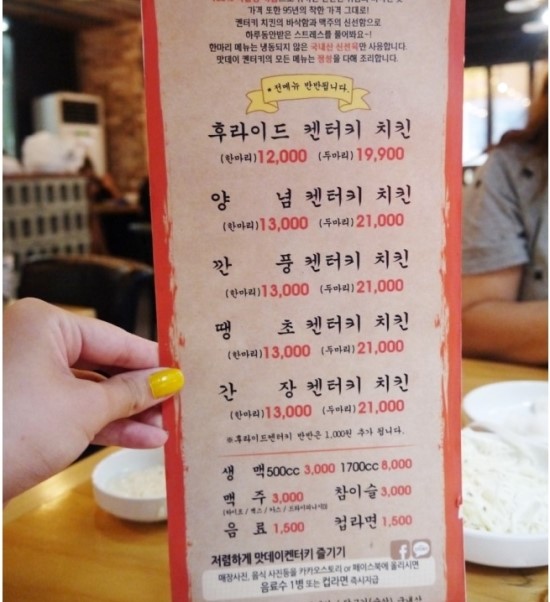 가격 또한 95년의 착한 가격 그대로!
켄터키 치킨의 바삭함과 맥주의 신선함으로
하루동안받은 스트레스를 풀어봐요~!
한마리 메뉴는 냉동되지 않은 국내산 신선육만 사용합니다.
맛데이 켄터키의 모든 메뉴는 정성을 다해 조리합니다.
*전메뉴 반반됩니다.
후라이드 켄터키 치킨
(한마리)12,000 (두마리)19,900
양 념 켄터키 치킨
(한마리)13,000 (두마리)21,000
깐 풍 켄터키 치킨
(한마리)13,000 (두마리)21,000
땡 초 켄터키 치킨
(한마리)13,000 (두마리)21,000
간 장 켄터키 치킨
(한마리)13,000 (두마리)21,000
※후라이드켄터키 반반은 1,000원 추가 됩니다.
생 맥 500cc 3,000 1700cc 8,000
맥 주 3,000 참이슬 3,000
음 료 1,500 컵라면 1,500
저렴하게 맛데이켄터키 즐기기
매장사진, 음식 사진등을 카카오스토리 or 페이스북에 올리시면
음료수 1병 또는 컵라면 즉시지급